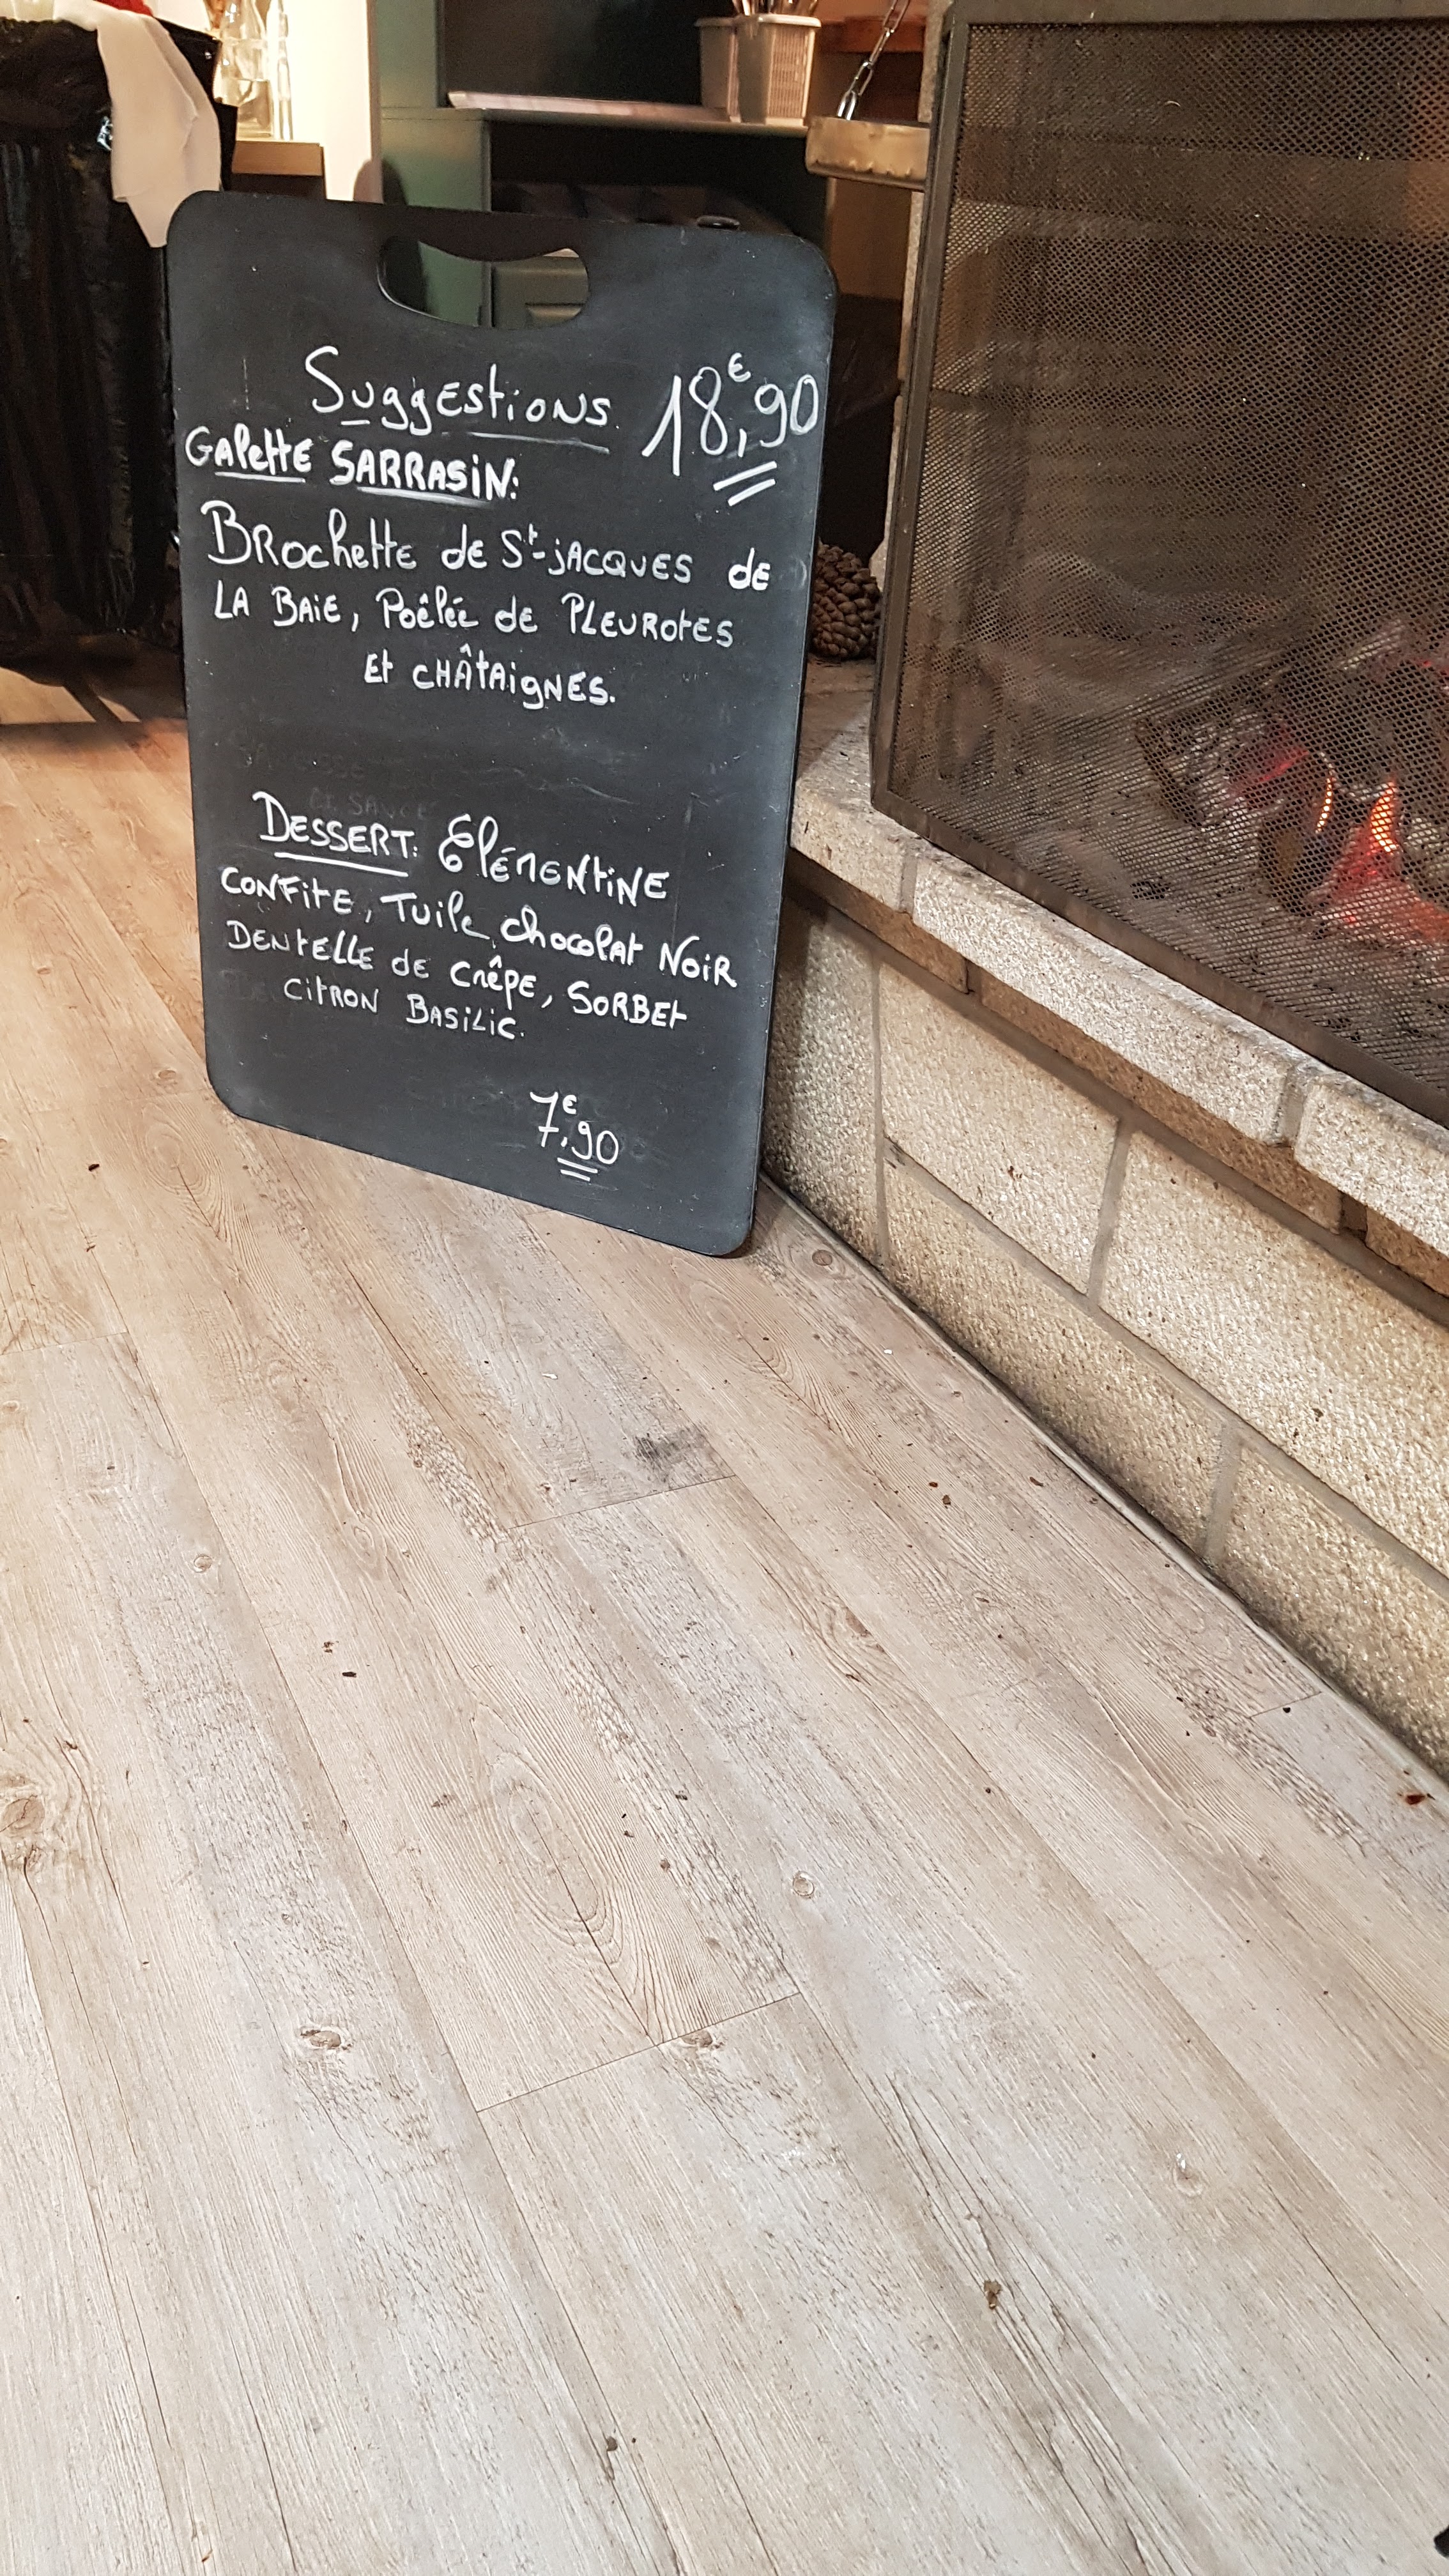 Suggestions 18€,90
Galette SARRASiN:
Brochette de St-jACQUES de
LA BAiE, Poêlée de PLEUROtES
Et CHÂtAigNES.
DESSERT: ClémENtiNE
CONFitE, Tuile chocolat NoiR
DENtELLE de CRêpE, SORBEt
CitRON BASiLiC.
7€,90